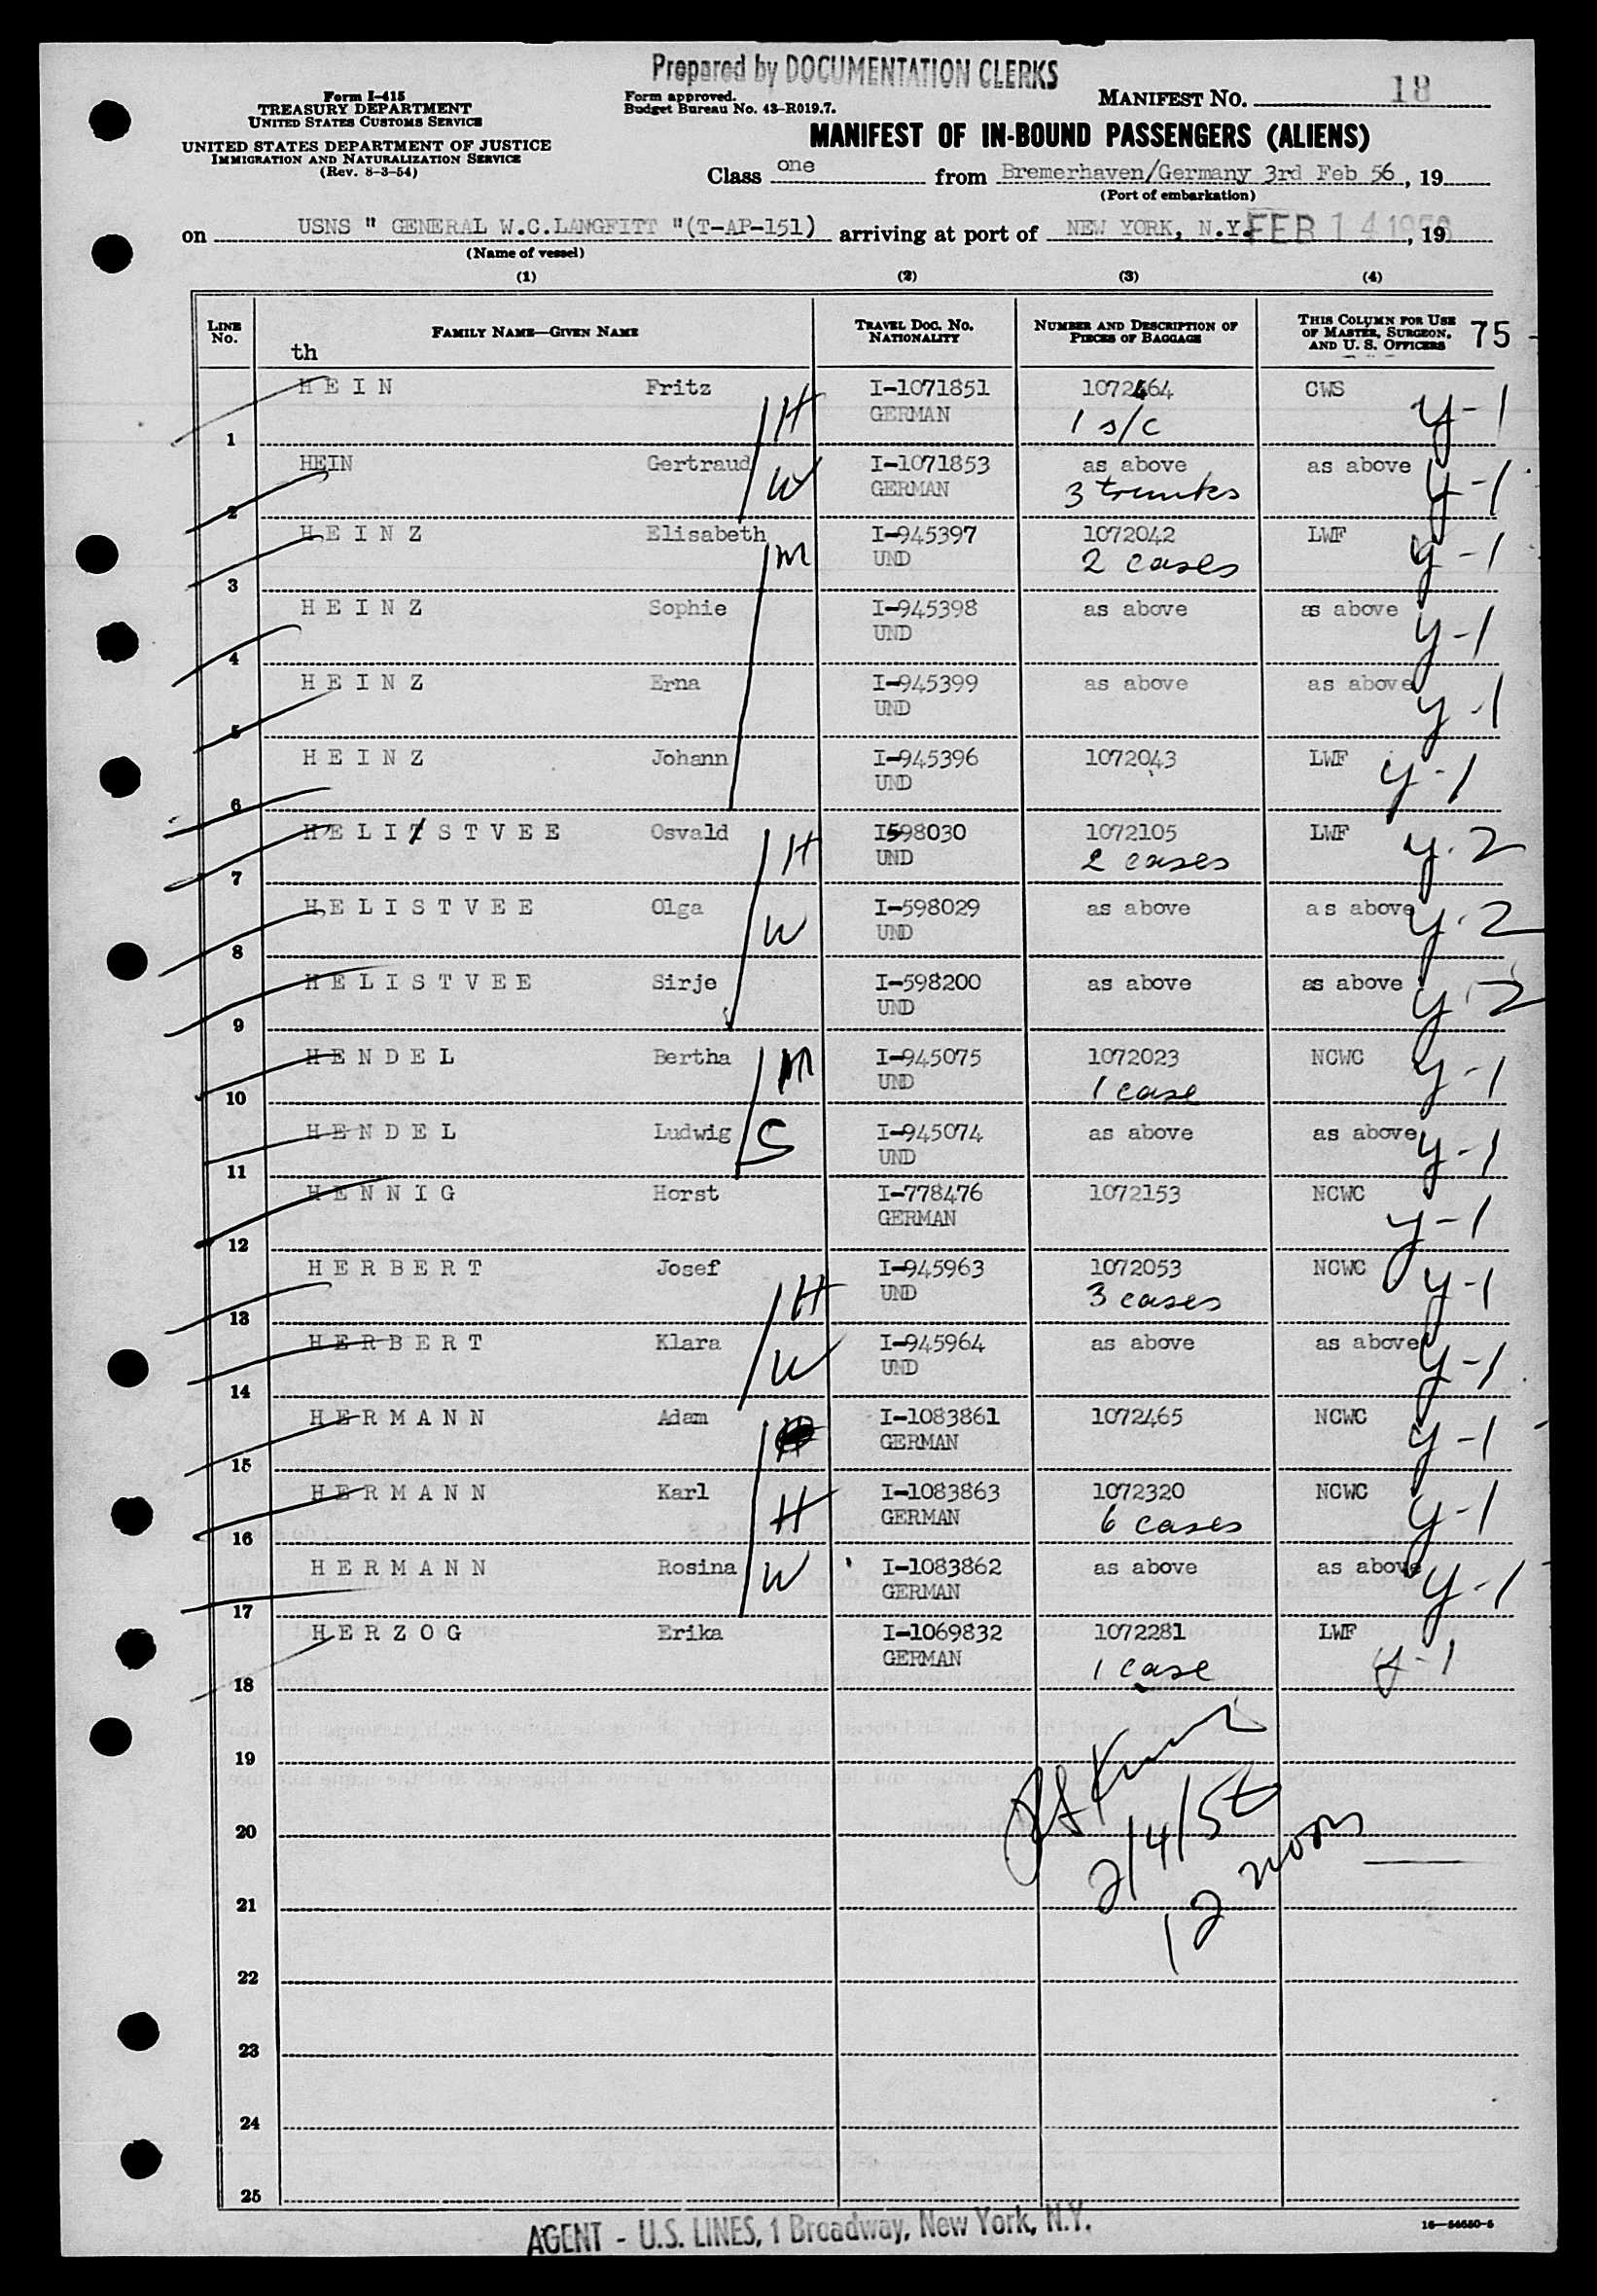 Prepared by DOCUMENTATION CLERKS
Form I-415
TREASURY DEPARTMENT
UNITED STATES CUSTOMS SERVICE
UNITED STATES DEPARTMENT OF JUSTICE
IMMIGRATION AND NATURALIZATION SERVICE
(Rev. 8-3-54)
Form approved.
Budget Bureau No. 43-R019.7.
MANIFEST NO. 18
MANIFEST OF IN-BOUND PASSENGERS (ALIENS)
Class one from Bremerhaven/Germany 3rd Feb 56, 19
(Port of embarkation)
on USNS " GENERAL W.C.LANGFITT "(T-AP-151) arriving at port of NEW YORK, N.Y. FEB 14 1956, 19
(Name of vessel)
(1) (2) (3) (4)
LINE NO. FAMILY NAME—GIVEN NAME TRAVEL DOC. NO. NATIONALITY NUMBER AND DESCRIPTION OF PIECES OF BAGGAGE THIS COLUMN FOR USE OF MASTER, SURGEON, AND U. S. OFFICERS 75
th
1 H E I N Fritz H I-1071851 1072464 CWS y-1
GERMAN 1 s/c
2 HEIN Gertraud W I-1071853 as above as above y-1
GERMAN 3 trunks
3 H E I N Z Elisabeth M I-945397 1072042 LWF y-1
UND 2 cases
4 H E I N Z Sophie I-945398 as above as above y-1
UND
5 H E I N Z Erna I-945399 as above as above y-1
UND
6 H E I N Z Johann I-945396 1072043 LWF y-1
UND
7 H E L I Z S T V E E Osvald H I598030 1072105 LWF y-2
UND 2 cases
8 H E L I S T V E E Olga W I-598029 as above as above y-2
UND
9 H E L I S T V E E Sirje I-598200 as above as above y-2
UND
10 H E N D E L Bertha M I-945075 1072023 NCWC y-1
UND 1 case
11 H E N D E L Ludwig S I-945074 as above as above y-1
UND
12 H E N N I G Horst I-778476 1072153 NCWC y-1
GERMAN
13 H E R B E R T Josef H I-945963 1072053 NCWC y-1
UND 3 cases
14 H E R B E R T Klara W I-945964 as above as above y-1
UND
15 H E R M A N N Adam I-1083861 1072465 NCWC y-1
GERMAN
16 H E R M A N N Karl H I-1083863 1072320 NCWC y-1
GERMAN 6 cases
17 H E R M A N N Rosina W I-1083862 as above as above y-1
GERMAN
18 H E R Z O G Erika I-1069832 1072281 LWF y-1
GERMAN 1 case
19
20
2/14/56
21
12 noon
22
23
24
25
AGENT - U.S. LINES, 1 Broadway, New York, N.Y.
16—54650-5